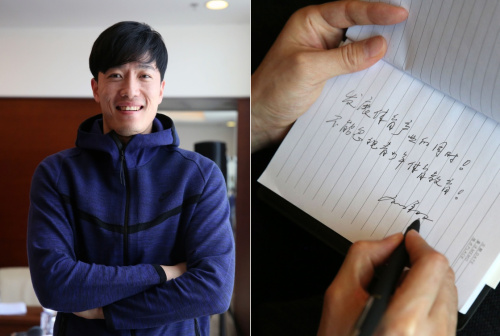 发展体育产业的同时!
不能忽视青少年体育教育!